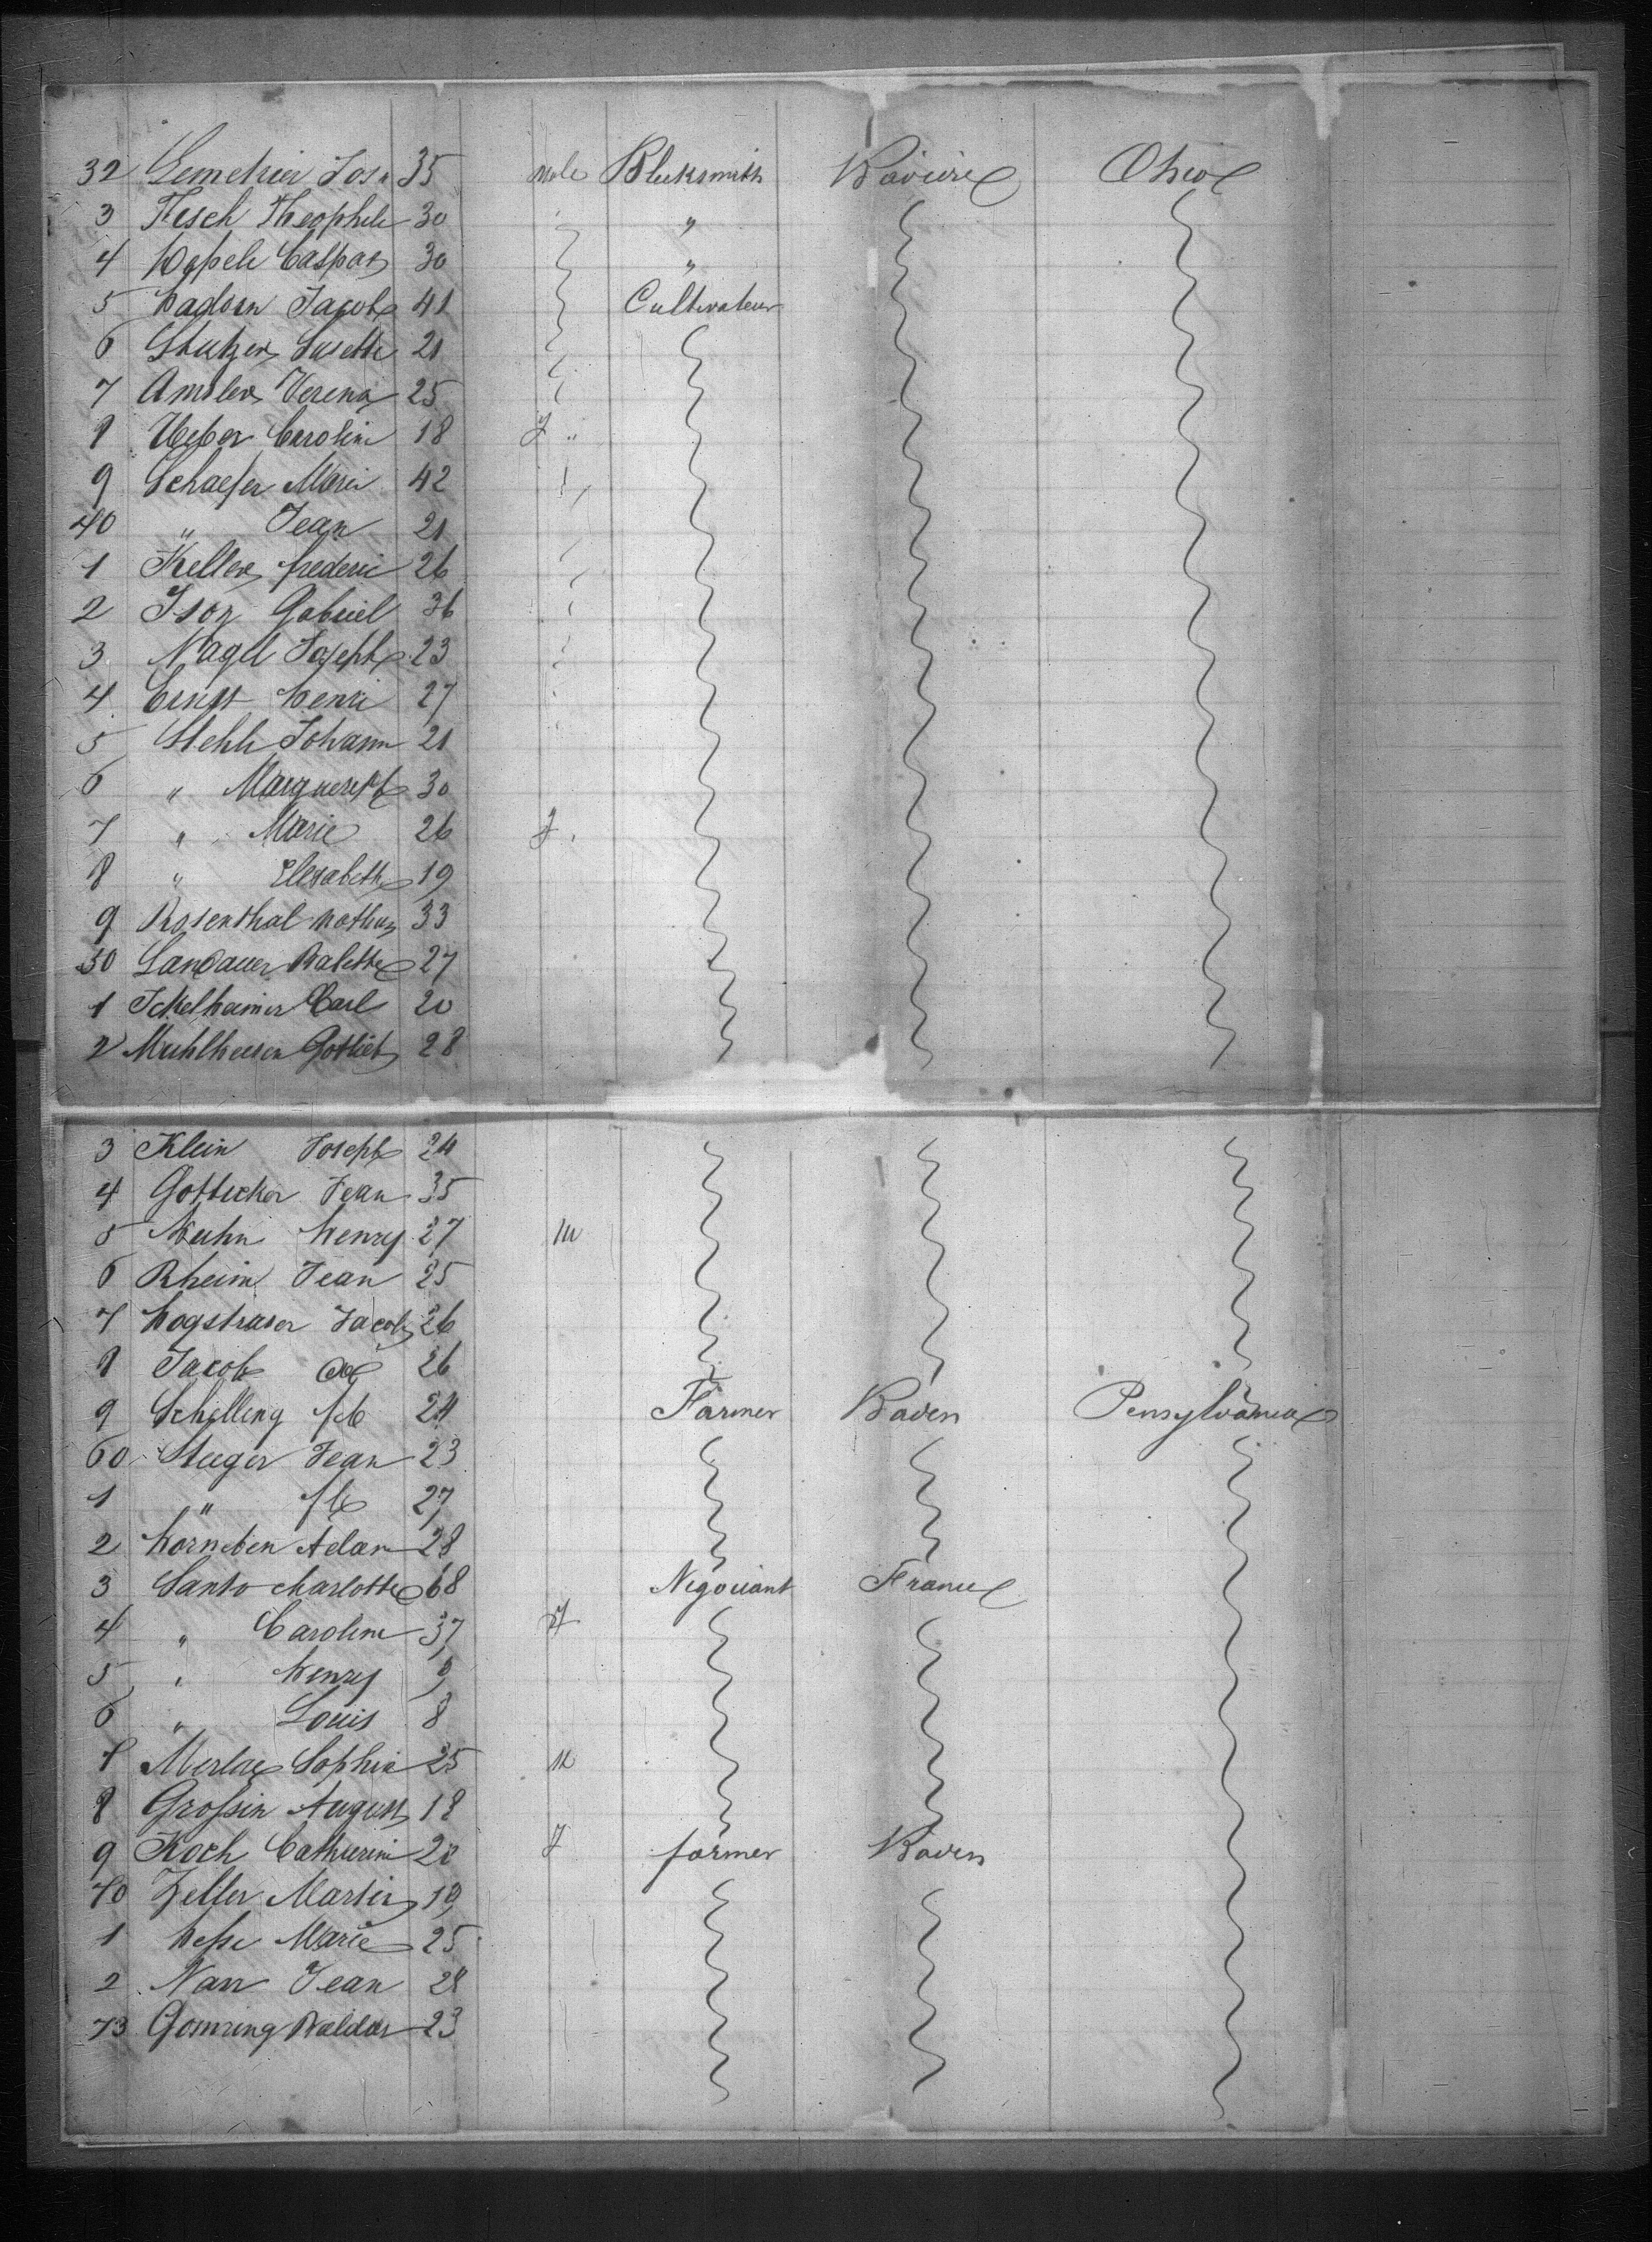 32 Lemetrier Jos. 35 Male Blacksmith Baviere Ohio
3 Fesch Theophile 30 " "
4 Wapele Caspar 30 "
5 Hadorn Jacob 41 Cultivateur
6 Stutzer Susette 21
7 Amsler Verena 25
8 Weber Caroline 18 f "
9 Schaefer Marie 42
40 " Jean 21
1 Keller frederic 26
2 Gabriel 36
3 Nagel Joseph 23
4 Ernst Henri 27
5 Stehli Johann 21
6 " Marguerith 30
7 " Marie 26 f "
8 " Elisabeth 19
9 Rosenthal Nathan 33
50 Landauer Babette 27
1 Ickelheimer Carl 20
2 Muhlheusen Gotlieb 28
3 Klein Joseph 24
4 Gottecker Jean 35
5 Kuhn Henry 27 m
6 Rheim Jean 25
7 Hogstraser Jacob 26
8 Jacob 26
9 Schilling 24 Farmer Baden Pensylvania
60 Steeger Jean 23
1 " 27
2 Horneben Adam 28
3 Santo charlotte 68 Negociant France
4 " Caroline 37 f
5 " Henry 9
6 " Louis 8
7 Sophie 25 m
8 Grossin August 18
9 Koch Catherine 22 f farmer Baden
70 Zeller Martin 19
1 Hesse Marie 25
2 Narr Jean 28
73 Gomring Baldas 23